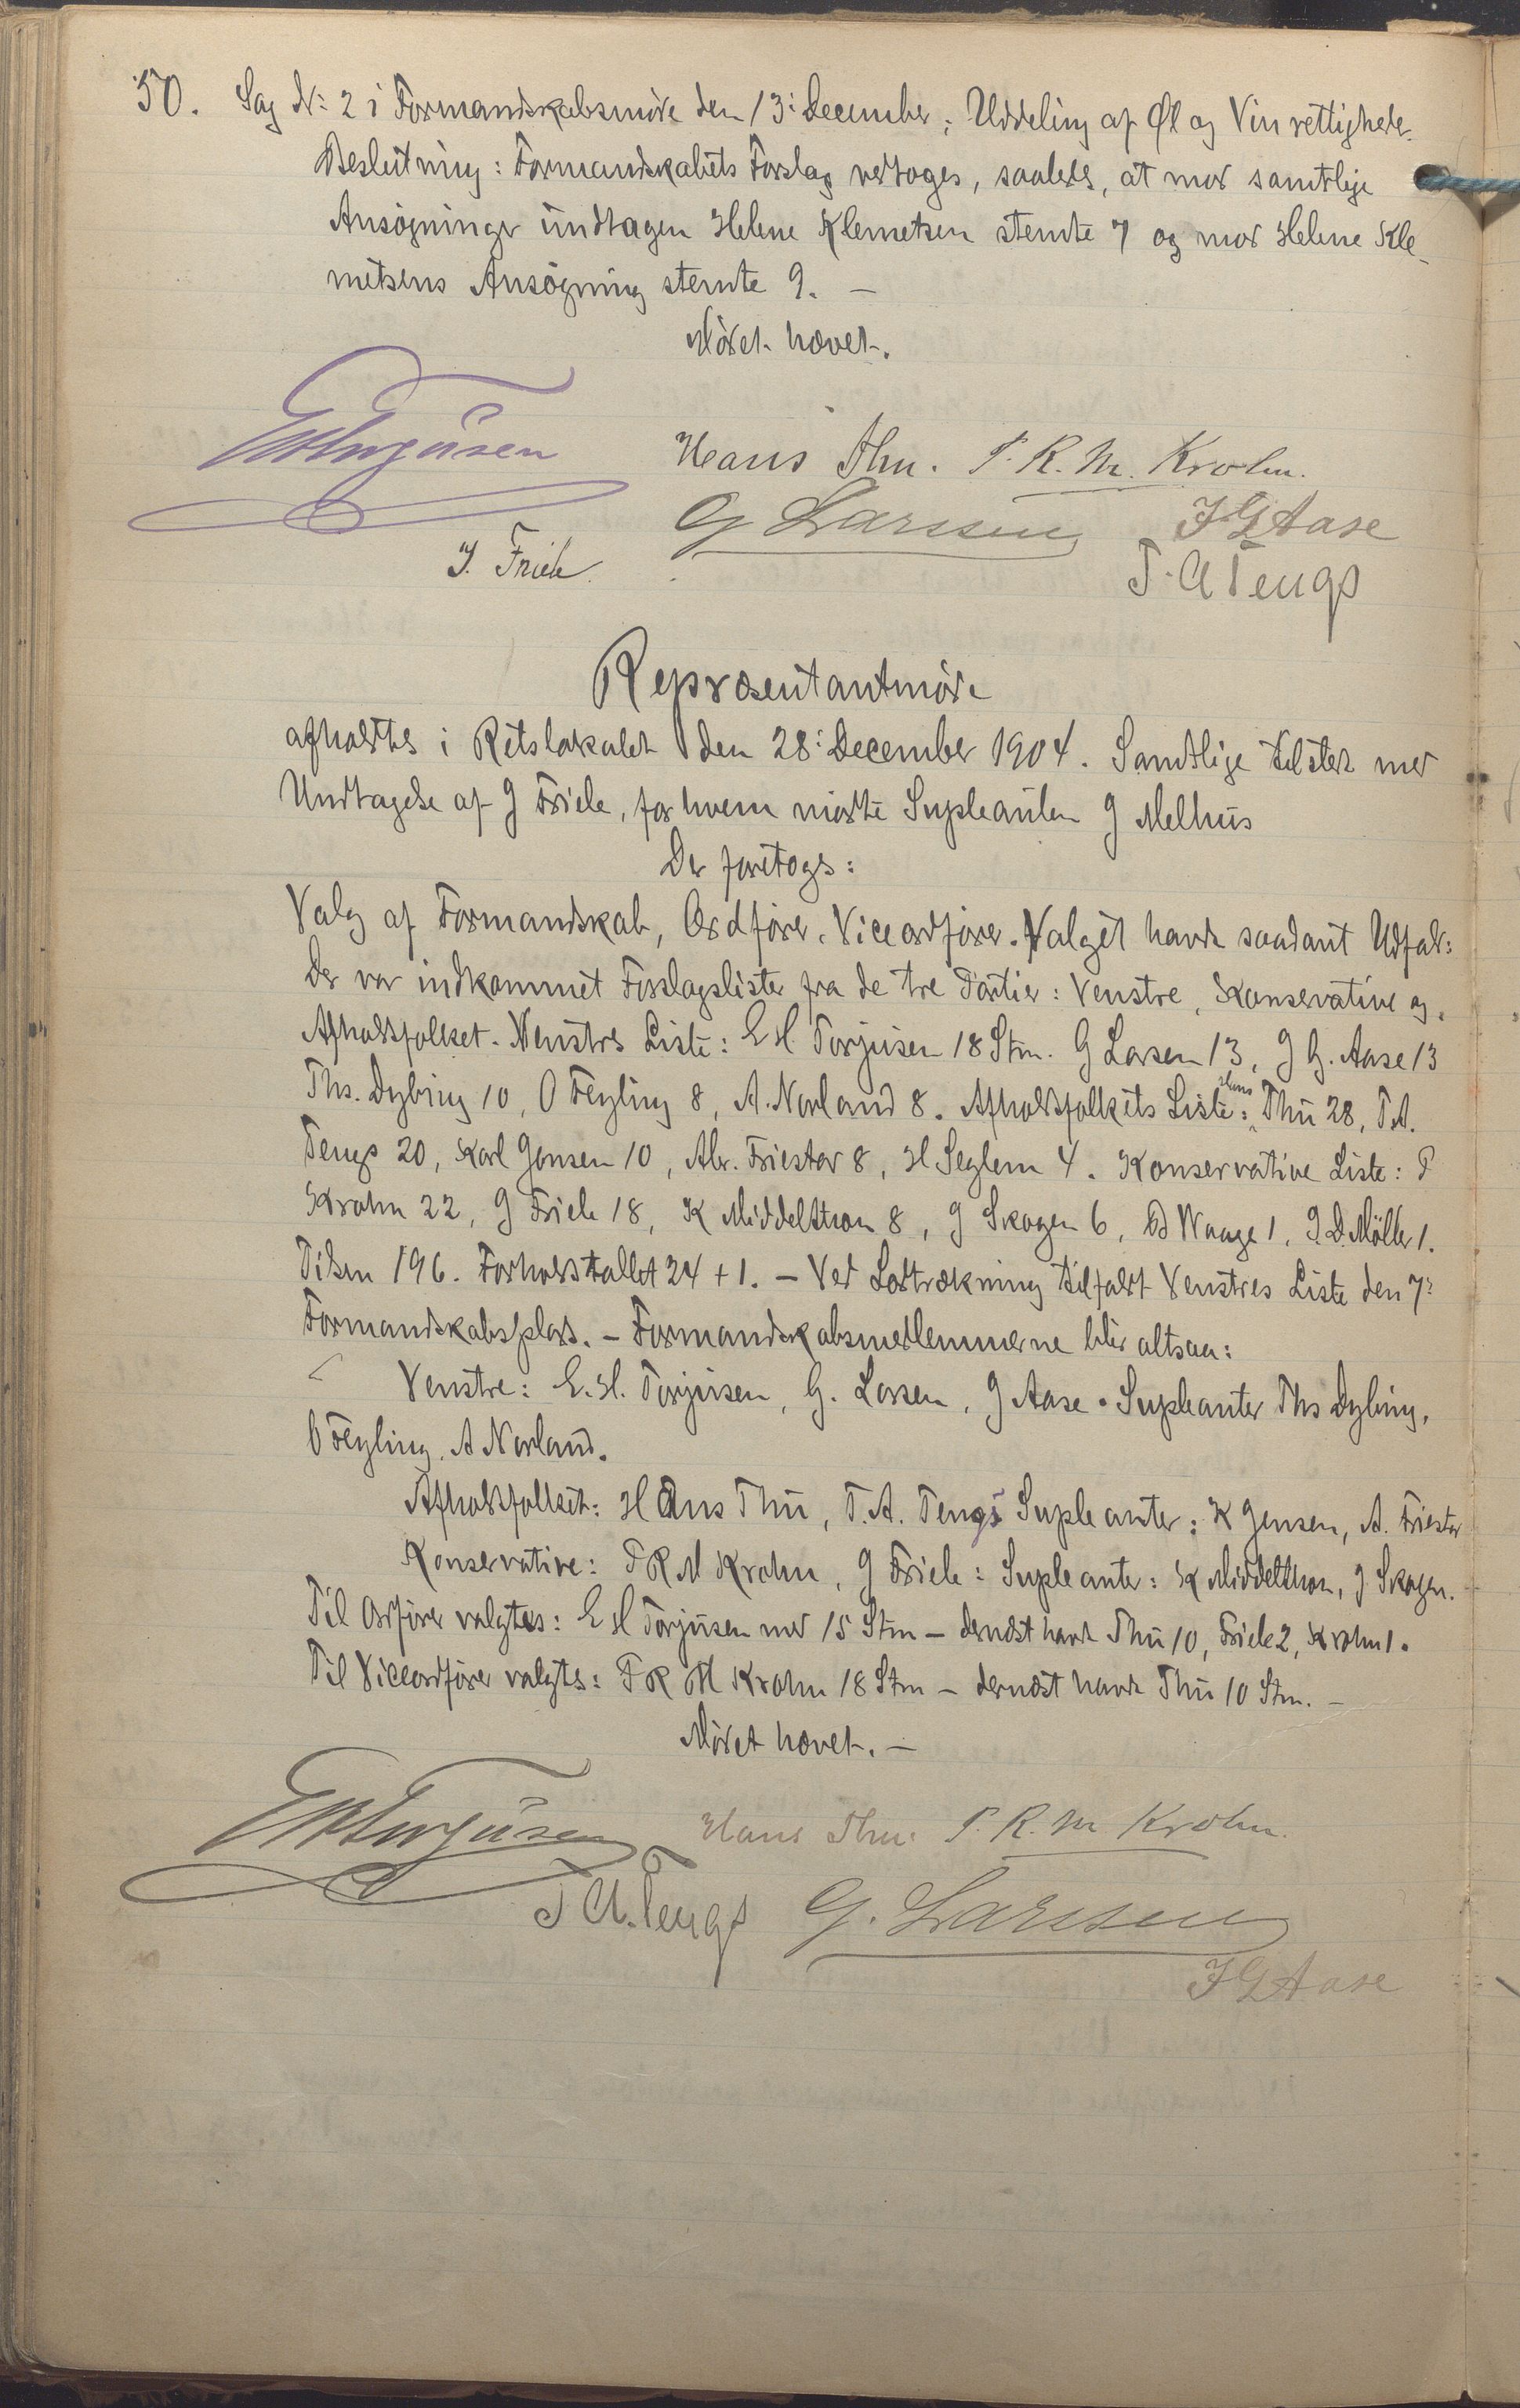 50. Sag N: 2 i Formandskabsmöde den 13: December: Uddeling af Øl og Vinrettigheder.
Beslutning: Formandskabets Forslag vedtoges, saaledes, at mod samtlige
Ansögninger undtagen Helene Klemetsen stemte 7 og mod Helene Kle-
metsens Ansögning stemte 9. –
Mödet hævet.
EHTorgüsen Hans Thu. F. R. M. Krohn.
G Larssen JGAase
J. Friele. T. A Tengs
Repræsentantmöde
afholdtes i Retslokalet den 28: December 1904. Samtlige tilstede med
Undtagelse af J Friele, for hvem mödte Supleanten J Melhus
Der foretoges:
Valg af Formandskab, Ordförer, Viceordförer. Valget havde saadant Udfald:
Der var indkommet Forslagslister fra de tre Partier: Venstre, Konservative og
Afholdsfolket. Venstres Liste: E H Torjusen 18 Stm. G Larsen 13, J G. Aase 13
Ths. Dybing 10, O Feyling 8, A. Norland 8. Afholdsfolkets Liste: Hans Thu 28, T.A.
Tengs 20, Karl Jensen 10, Abr. Friestad 8, H Seglem 4. Konservative Liste: F
Krohn 22, J Friele 18, K Middelthon 8, J Skogen 6, Waage 1, J. D. Möller 1.
Tilsm 196. Forholdstallet 24 + 1. – Ved Lodtrækning tilfaldt Venstres Liste den 7:
Formandskabsplads. – Formandskabsmedlemmerne blir altsaa:
Venstre: E. H. Torjusen, G. Larsen, J Aase. Supleanter Ths Dybing,
O Feyling, A Norland.
Afholdsfolket: Hans Thu, T. A. Tengs Supleanter: K Jensen, A. Friestad
Konservative: F R M Krohn, J Friele: Supleanter: K Middelthon, J Skogen.
Til Ordförer valgtes: E H Torjusen med 15 Stm – dernæst havde Thu 10, Friele 2, Krohn 1.
Til Viceordförer valgtes: F R M Krohn 18 Stm – dernæst havde Thu 10 Stm. –
Mödet hævet. –
EHTorgüsen Hans Thu. F. R. M Krohn.
T A. Tengs G. Larssen
JGAase